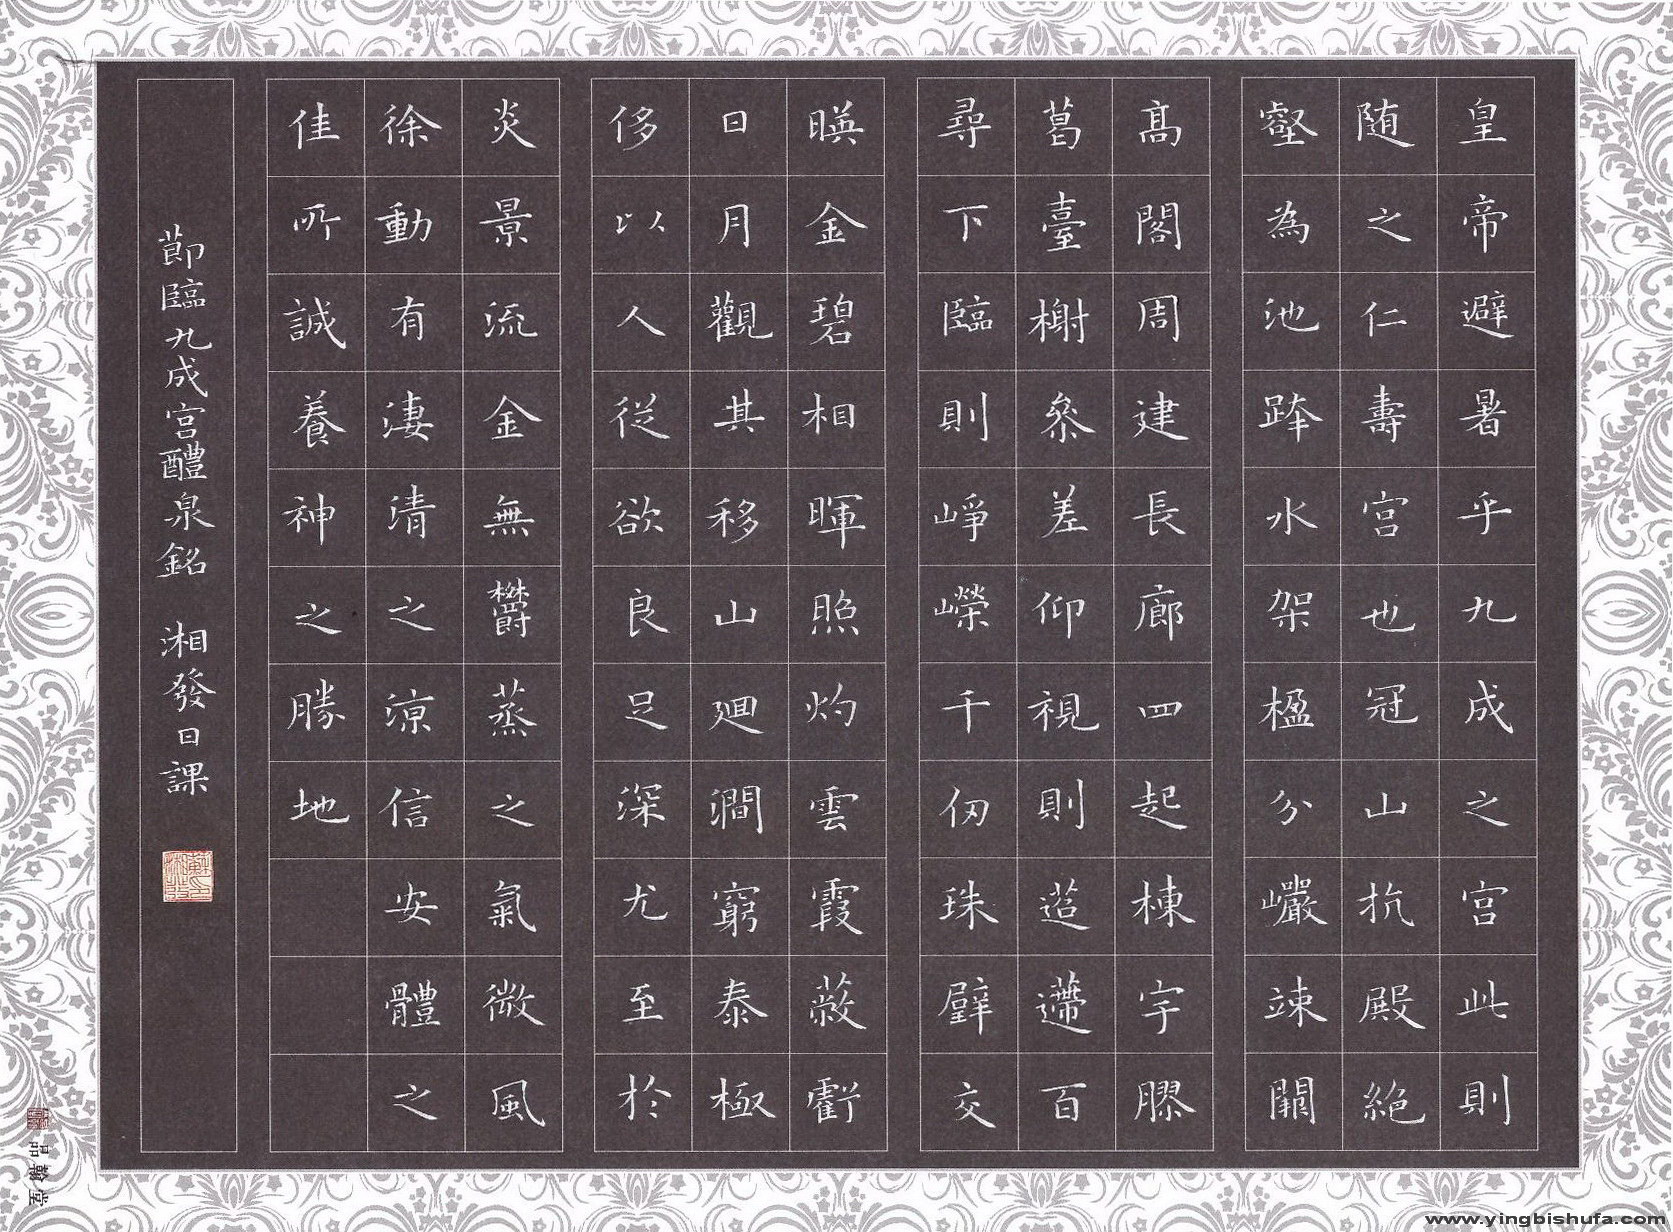 皇帝避暑乎九成之宫此則
随之仁壽宫也冠山抗殿絕
壑為池跨水架楹分巖竦闕
高閣周建長廊四起棟宇膠
葛臺榭叅差仰視則迢遰百
尋下臨則崢嶸千仞珠璧交
暎金碧相暉照灼雲霞蔽虧
日月觀其移山廻澗窮泰極
侈以人從欲良足深尤至於
炎景流金無欝蒸之氣微風
徐動有淒清之涼信安體之
佳所誠養神之勝地
節臨九成宫醴泉銘 湘發日課
品翰堂
www.yingbishufa.com